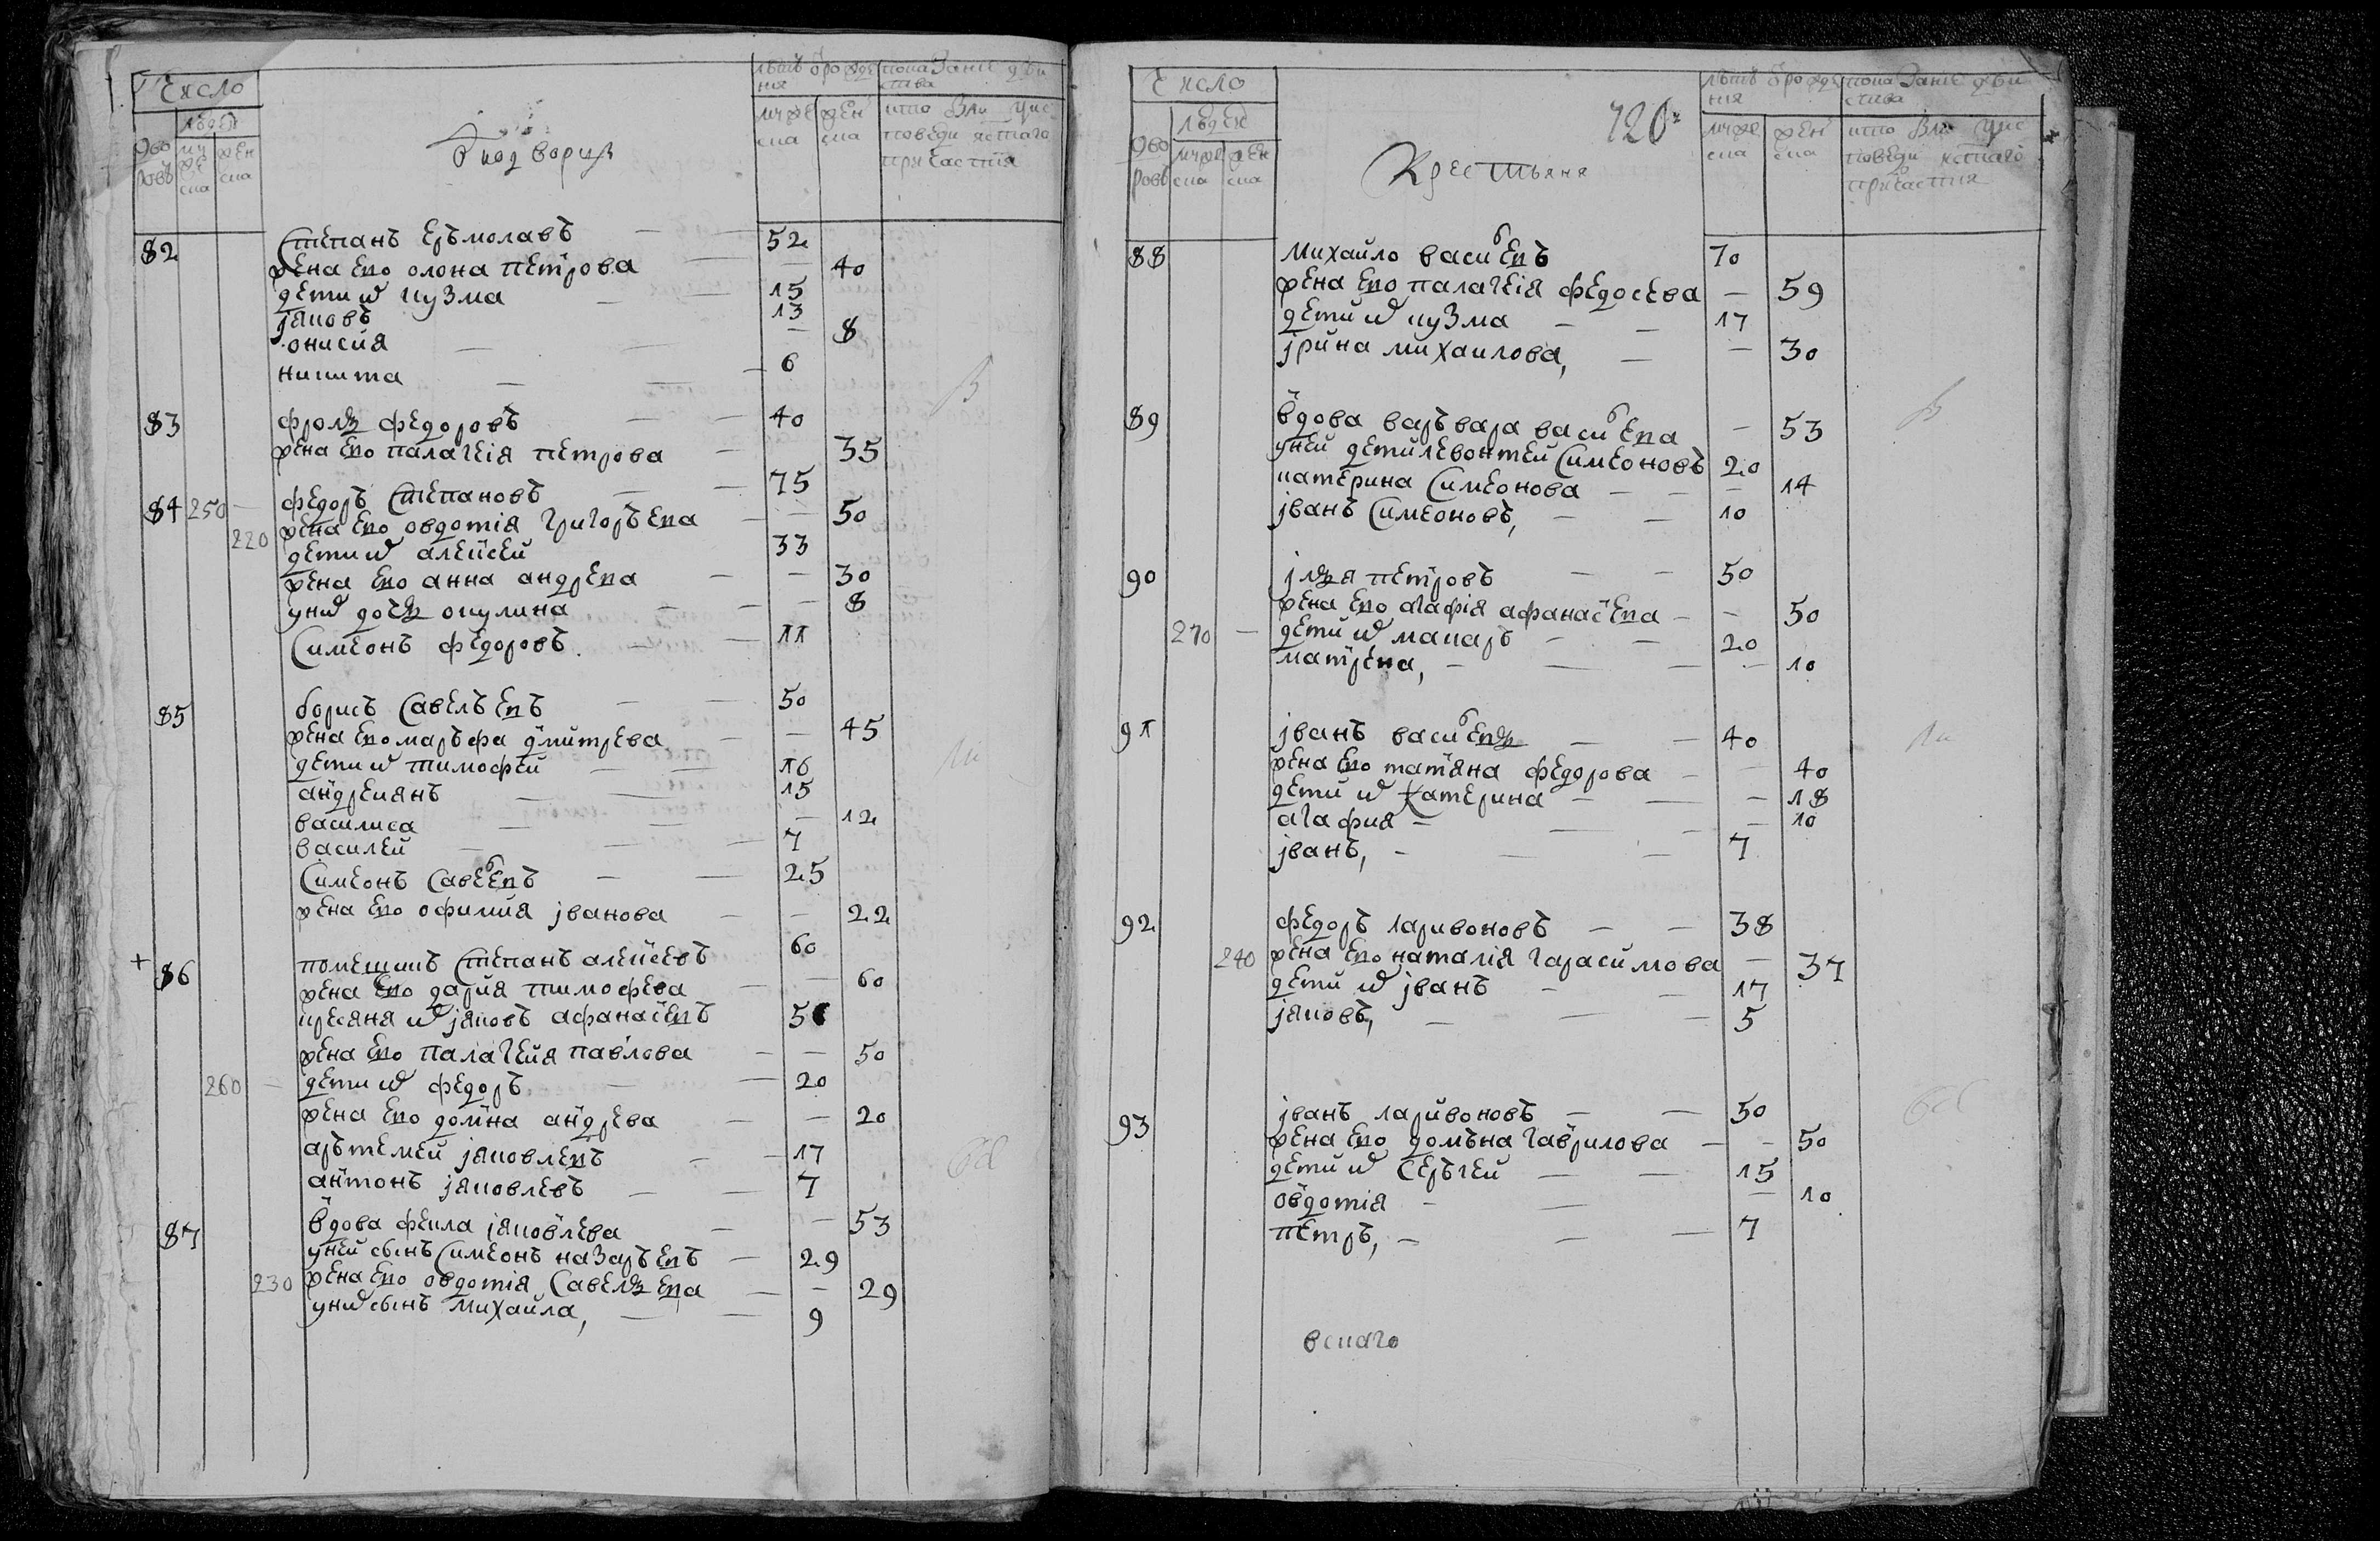 Число
людей
дво
ровъ
му
же
ска
жен
ска
Однодворцы
лѣтъ ѿ рожде
ния
муже
ска
жен
ска
показание дѣй
ства
кто былъ у ис
поведи и с͠таго
причастїя
82
Степанъ еръмолавъ — — 52
жена ево олона петрова — — 40
дети иⷯ кузма — — 15
јаковъ 13
онисия — — — 8
никита — — — 6
83
фролъ федоровъ — — 40
жена ево палагеія петрова — 35
84 250 — федоръ Степановъ — — 75
220 жена ево овдотія григорьева — — 50
дети иⷯ алексей 33
жена ево анна андрева — — 30
униⷯ дочь окулина — — — 8
Симеонъ федоровъ — — 11
85
борисъ Савельевъ — — 50
жена ево маръфа дмитрева — — 45
дети иⷯ тимофей — — 16
андреянъ — — 15
василиса — — — 12
василей — — 7
Симеонъ Савелⷧевъ — — 25
жена ево офимия јванова — — 22
+ 86
помещикъ Степанъ алексевъ 60
жена ево дария тимофева — — 60
кресяня иⷯ јаковъ афанасевъ 5
жена ево палагея павлова — — 50
260 — дети иⷯ федоръ — — 20
жена ево домна андрева — — 20
аръте­мей јаковлевъ — — 17
антонъ јаковлевъ — — 7
87
вдова фекла јаковлева — — 53
уней сынъ Симеонъ назаръевъ — 29
230 жена ево овдотія Савельева — — 29
униⷯ сынъ михайла, — — 9
120
Число
людей
дво
ровъ
муже
ска
жен
ска
Крестьяня
лѣтъ ѿ рожде
ния
муже
ска
жен
ска
показание дѣй
ства
кто былъ у ис
поведи и с͠таго
причастия
88
михайло василⷧевъ 70
жена ево палагеія федосева — 59
дети иⷯ кузма — — 17
јрина михаилова, — — 30
89
вдова варъвара василⷧева — 53
уней дети левонтей Симеоновъ 20
катерина Симеонова — — — 14
јванъ Симеоновъ, — — 10
90
јлья петровъ — — 50
жена ево агафія афанасева — — 50
270 — дети иⷯ макаръ — — 20
матрена, — — — — 10
91
јванъ василⷧевъ — — 40
жена ево татяна федорова — — 40
дети иⷯ катерина — — — 18
агафия — — — — 10
јванъ, — — — 7
92
федоръ ларивоновъ — — 38
240 жена ево наталія гарасимова — 37
дети иⷯ јванъ — — 17
јаковъ, — — — 5
93
јванъ ларивоновъ — — 50
жена ево домъна гаврилова — — 50
дети иⷯ Серъгей — — 15
овдотія — — — 10
петръ, — — — 7
всякаго